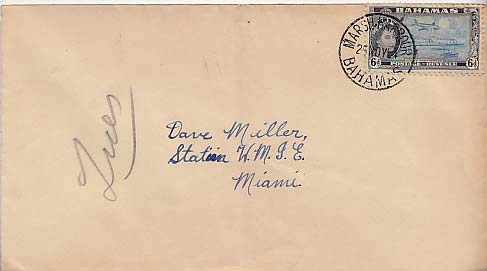 BAHAMAS
6d POSTAGE & REVENUE 6d
MARSH HARBOUR
BAHAMAS
Tues
Dave Miller,
Station W.M.I.E.
Miami.